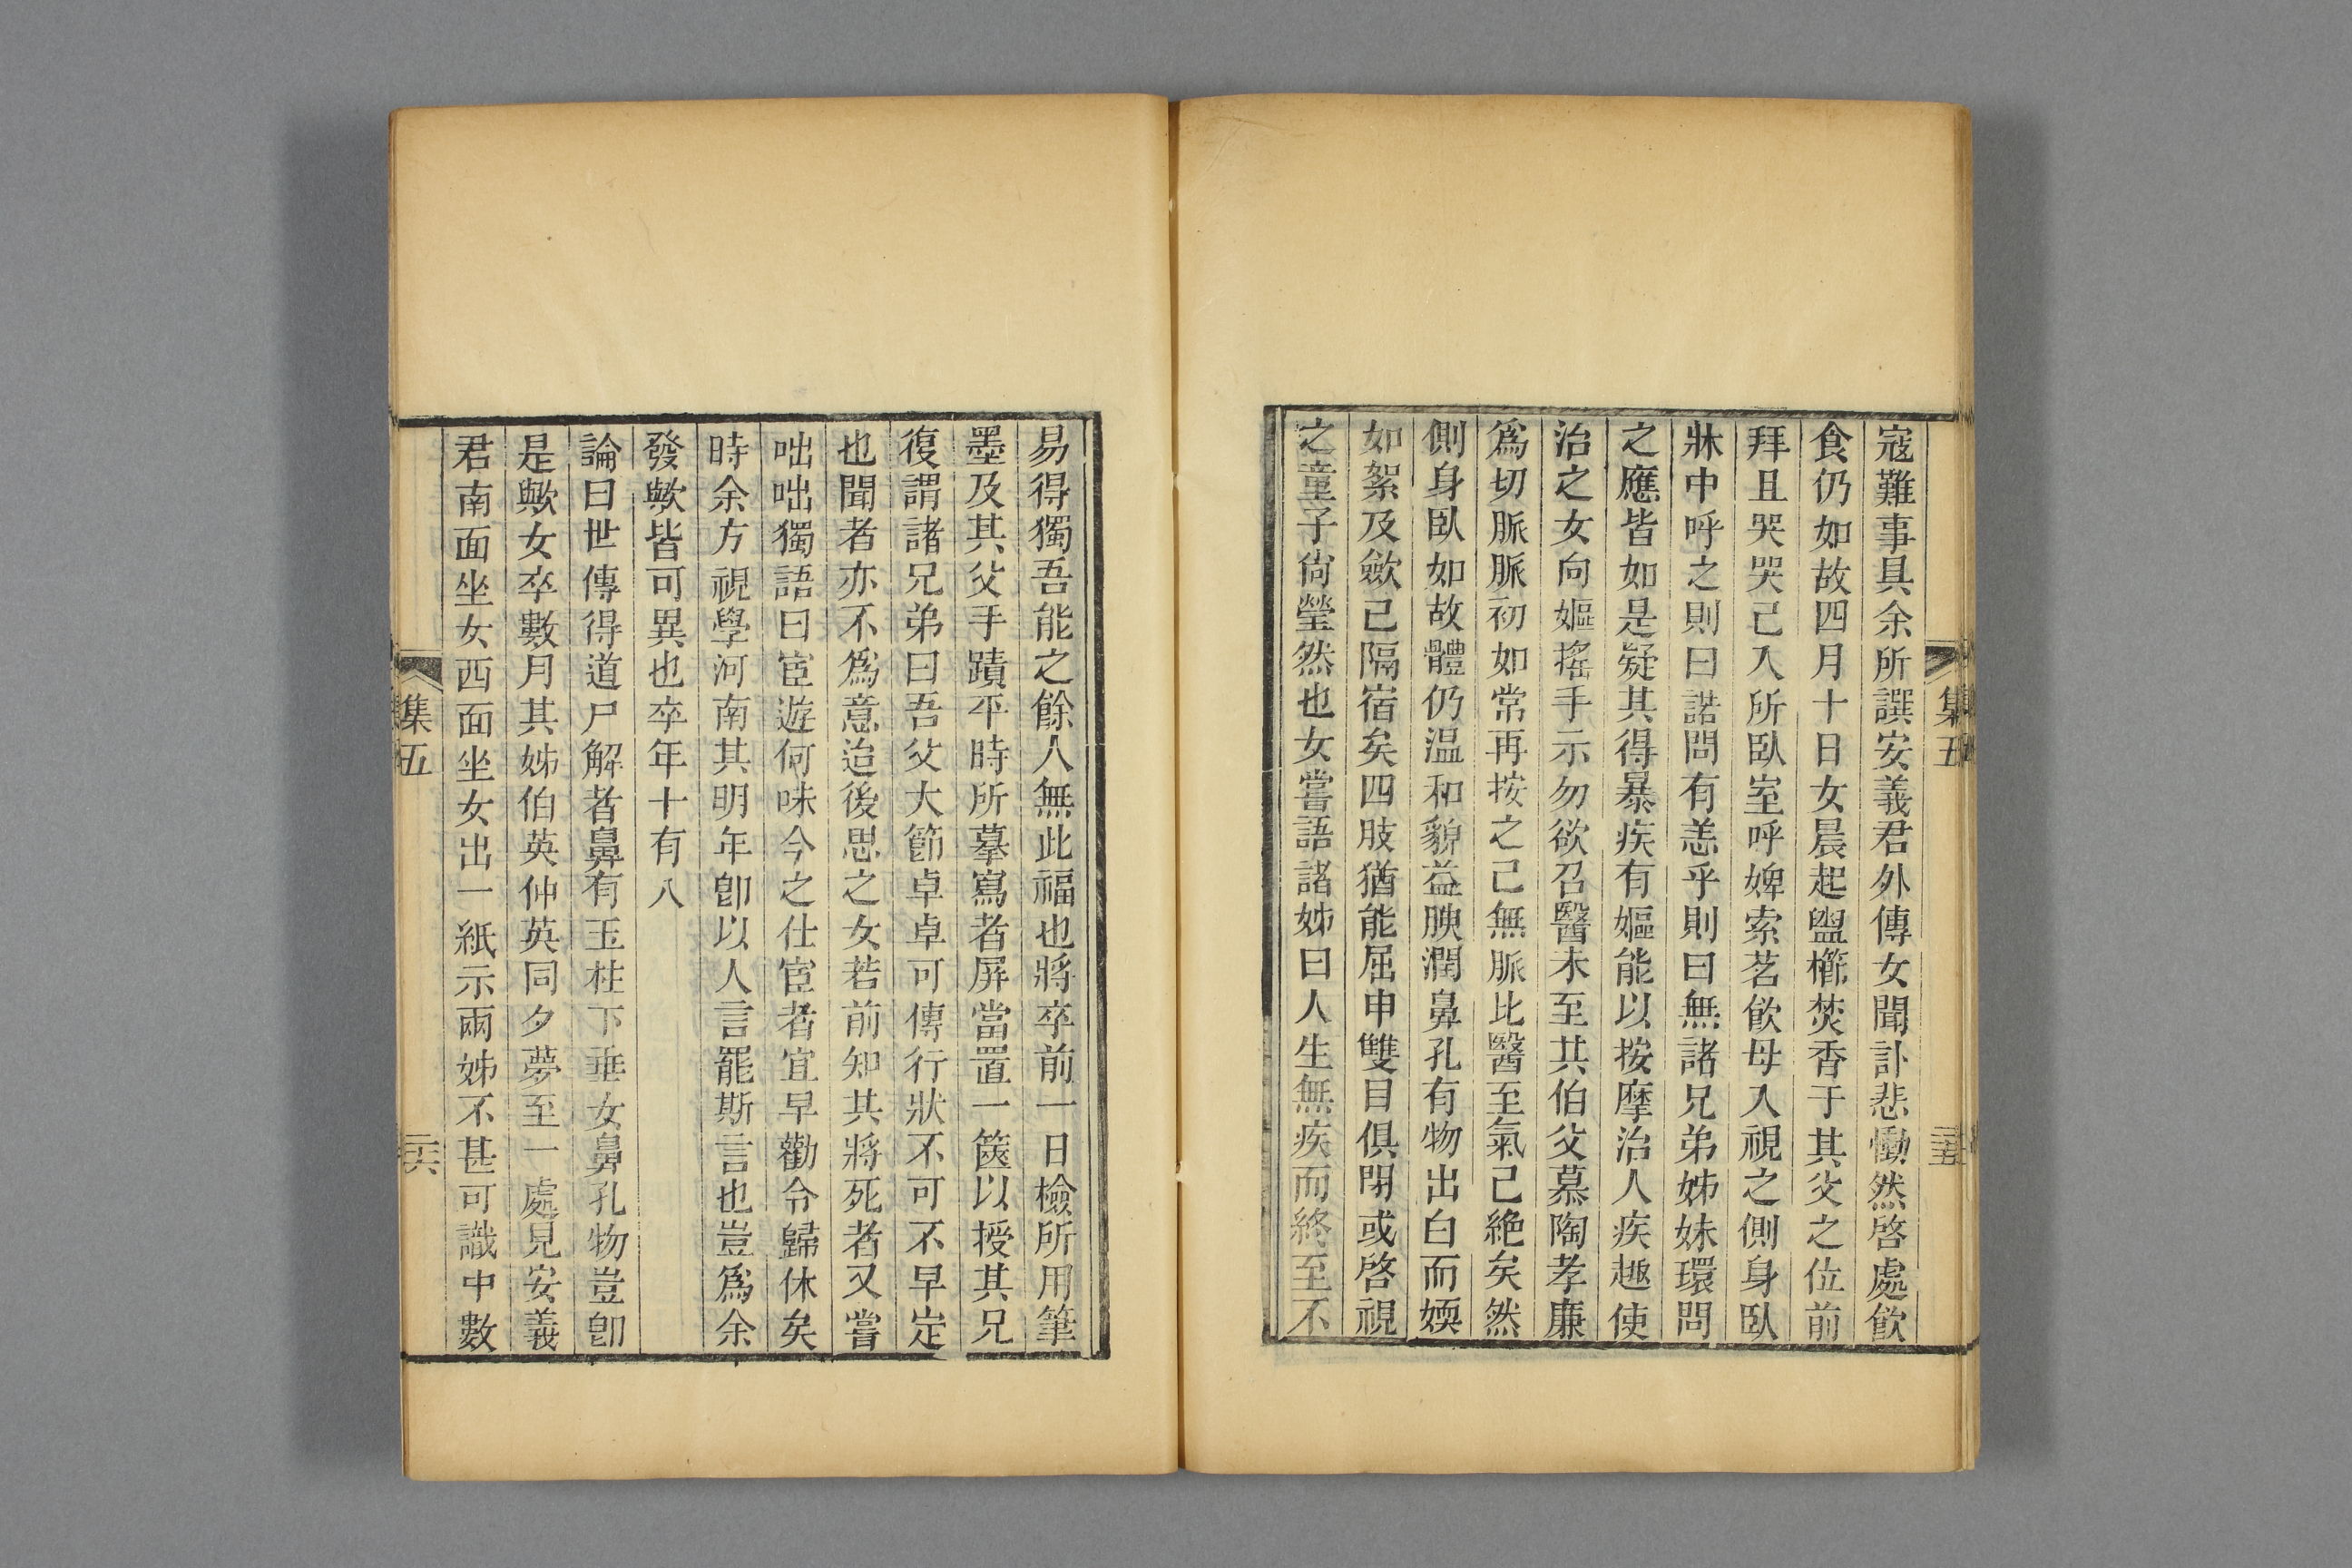 寇難事具余所譔安義君外傳女聞訃悲慟然啓處飮
食仍如故四月十日女晨起盥櫛焚香于其父之位前
拜且哭哭已入所臥室呼婢索茗飮母入視之側身臥
牀中呼之則曰諾問有恙乎則曰無諸兄弟姊妹環問
之應皆如是疑其得暴疾有嫗能以按摩治人疾趣使
治之女向嫗搖手示勿欲召醫未至其伯父慕陶孝廉
爲切脈脈初如常再按之已無脈比醫至氣已絶矣然
側身臥如故體仍温和貌益腴潤鼻孔有物出白而媆
如絮及歛已隔宿矣四肢猶能屈申雙目俱閉或啓視
之童子尙瑩然也女嘗語諸姊曰人生無疾而終至不
集五
二十五
易得獨吾能之餘人無此福也將卒前一日檢所用筆
墨及其父手蹟平時所摹寫者屏當置一篋以授其兄
復謂諸兄弟曰吾父大節卓卓可傳行狀不可不早定
也聞者亦不爲意迨後思之女若前知其將死者又嘗
咄咄獨語曰宦遊何味今之仕宦者宜早勸令歸休矣
時余方視學河南其明年卽以人言罷斯言也豈爲余
發歟皆可異也卒年十有八
論曰世傳得道尸解者鼻有玉柱下垂女鼻孔物豈卽
是歟女卒數月其姊伯英仲英同夕夢至一處見安義
君南面坐女西面坐女出一紙示兩姊不甚可識中數
集五
二十六